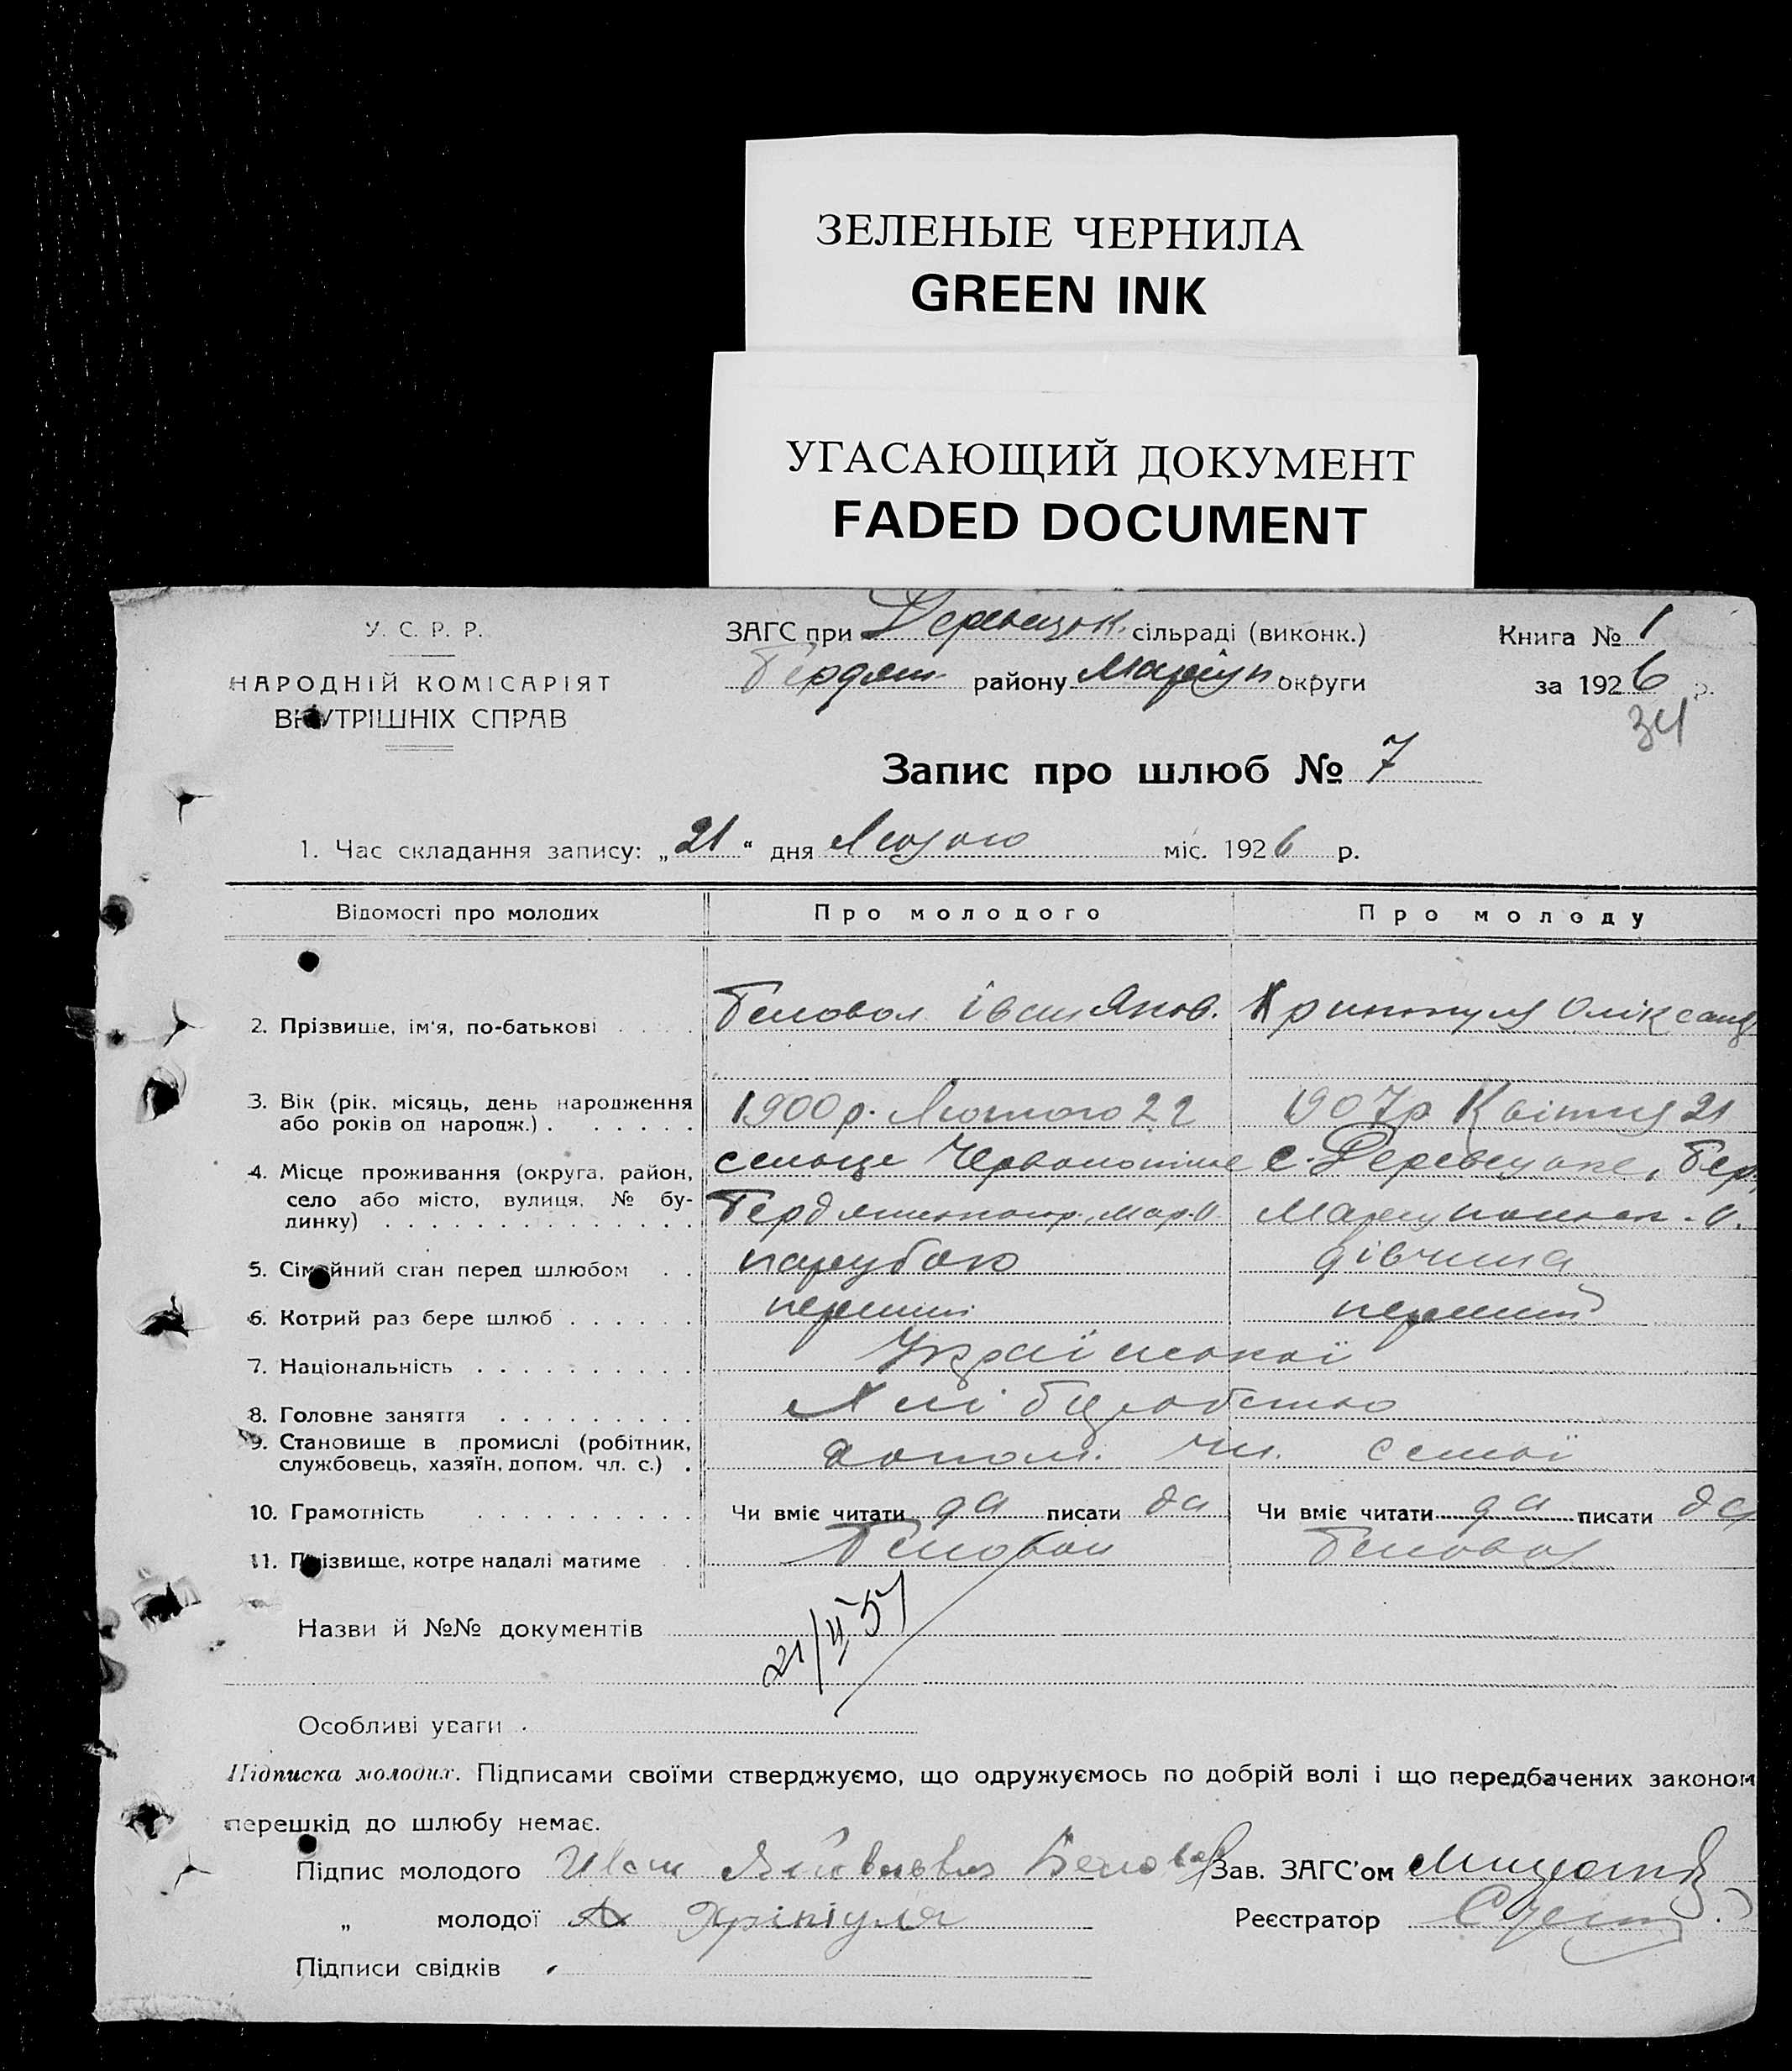 ЗЕЛЕНЫЕ ЧЕРНИЛА
GREEN INK
УГАСАЮЩИЙ ДОКУМЕНТ
FADED DOCUMENT
У. С. Р. Р.
НАРОДНІЙ КОМІСАРІЯТ
ВНУТРІШНІХ СПРАВ
ЗАГС при Деревецьк. сільраді (виконк.)
Бердян. району Маріуп. округи
Книга № 1
за 1926 р.
34
Запис про шлюб № 7
1. Час складання запису: „21“ дня Лютого міс. 1926 р.
Відомості про молодих Про молодого Про молоду
2. Прізвище, ім'я, по-батькові Беловол Іван Яков. Оліксанд
3. Вік (рік, місяць, день народження 1900р. Лютого 22 1907р Квітня 21
або років од народж.)
4. Місце проживання (округа, район, селище с. Деревецьке, Бер.
село або місто, вулиця, № бу- Мар. О.
динку)
5. Сімейний стан перед шлюбом парубок дівчина
6. Котрий раз бере шлюб перший перший
7. Національність Української
8. Головне заняття Хліборобство
9. Становище в промислі (робітник, допом. чл. семьї
службовець, хазяїн, допом. чл. с.)
10. Грамотність Чи вміє читати да писати да Чи вміє читати да писати да
11. Прізвище, котре надалі матиме Беловол Беловол
Назви й №№ документів
21/II 57
Особливі уваги
Підписка молодих. Підписами своїми стверджуємо, що одружуємось по добрій волі і що передбачених законом
перешкід до шлюбу немає.
Підпис молодого Иван Белово Зав. ЗАГС'ом
„ молодої Хріпіуля Реєстратор
Підписи свідків